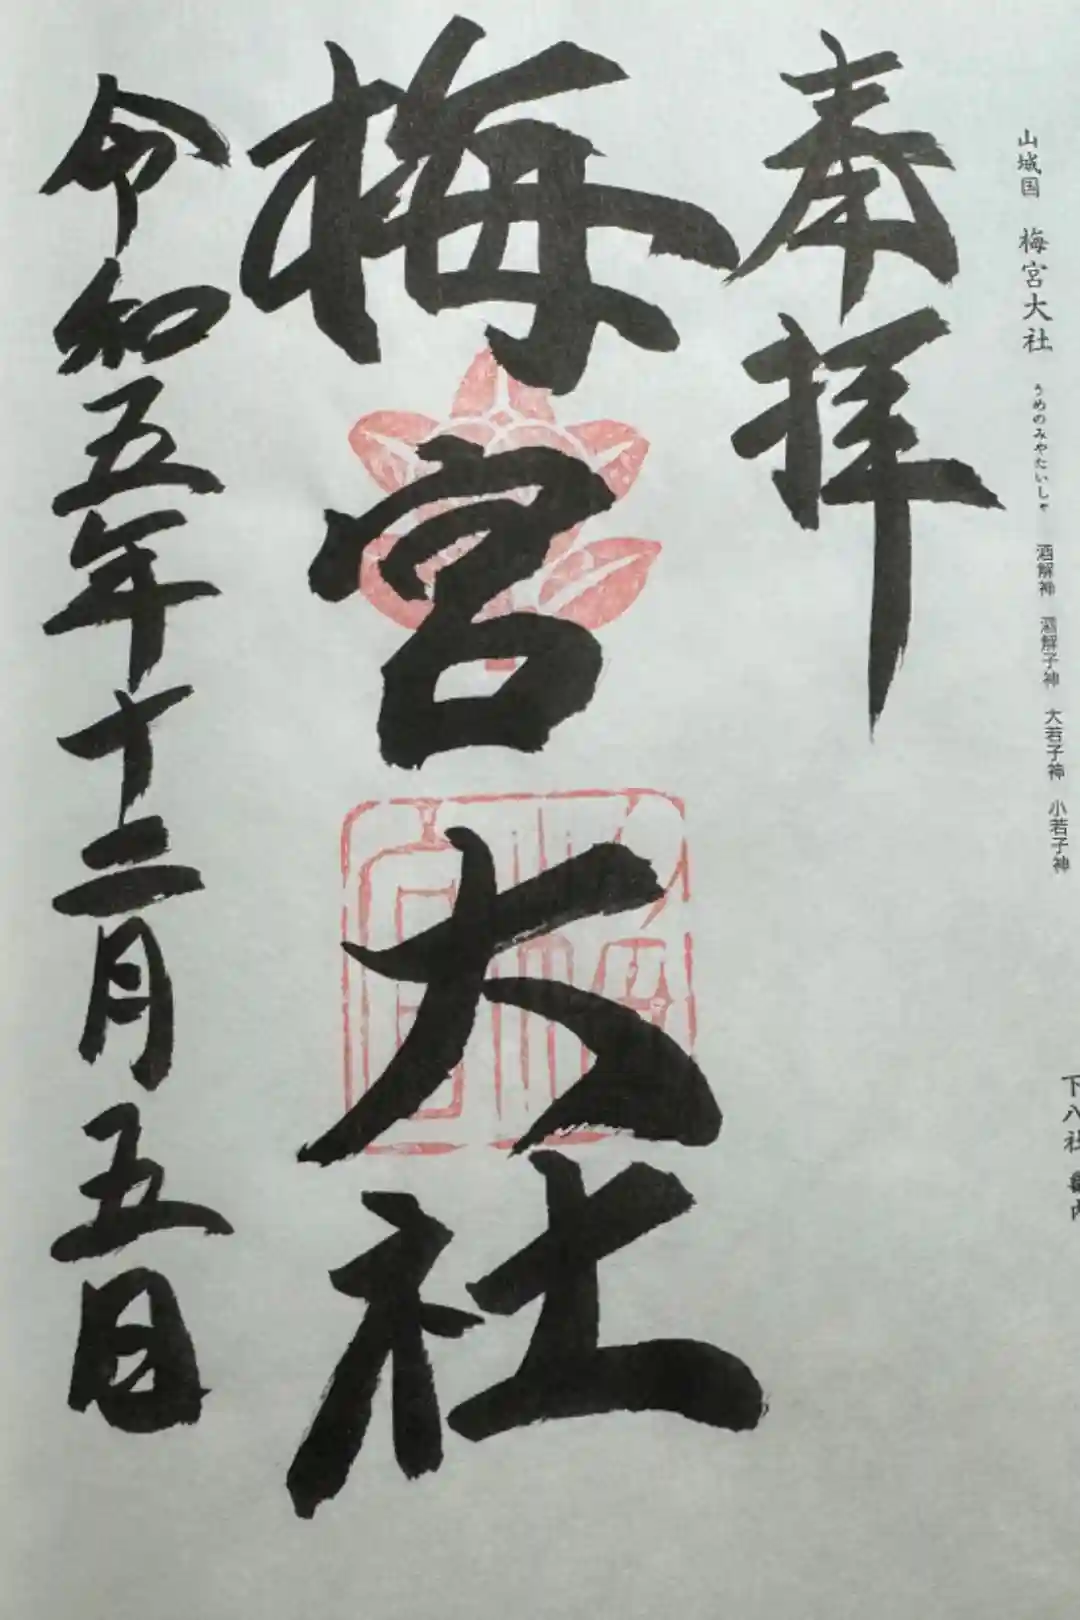 山城国 梅宮大社 うめのみやたいしゃ 酒解神 酒解子神 大若子神 小若子神
下八社
奉拝
梅宮大社
令和五年十二月五日